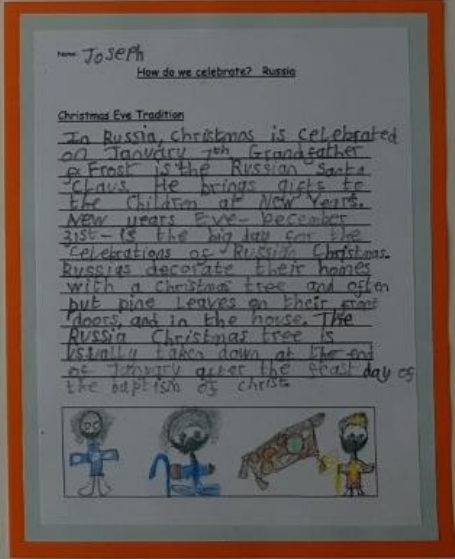 Name: Joseph
How do we celebrate? Russia
Christmas Eve Tradition
In Russia, Christmas is celebrated
on January 7th Grandfather
Frost is the Russian Santa
Claus. He brings gifts to
the children at New Years.
New years Eve- December
31st- is the big day for the
celebrations of Russian Christmas.
Russias decorate their homes
with a Christmas tree and often
put pine leaves on their front
doors, and in the house. The
Russia Christmas tree is
usually taken down at the end
of January after the feast day of
the baptism of christ.